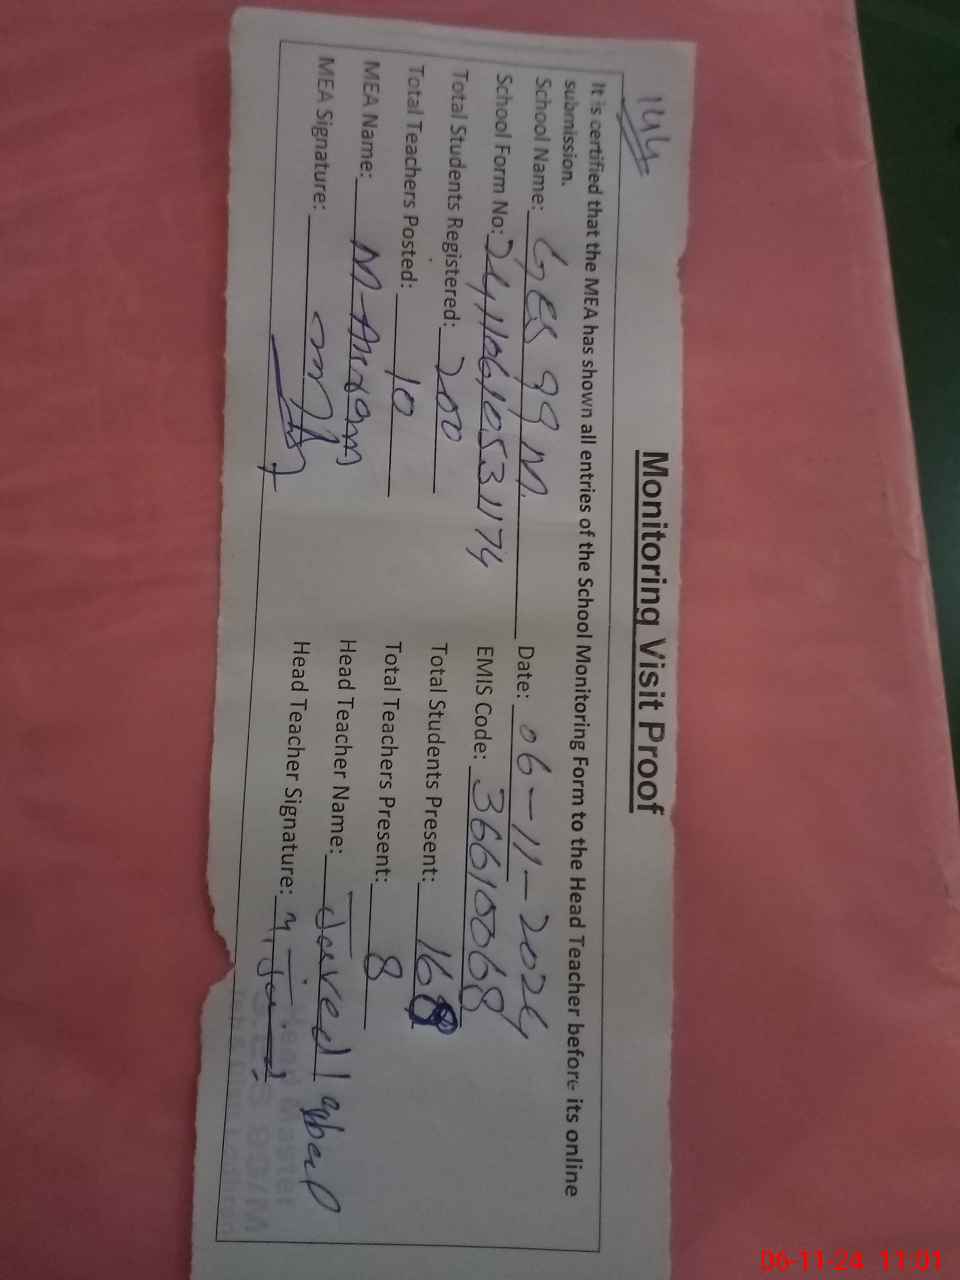 144
Monitoring Visit Proof
It is certified that the MEA has shown all entries of the School Monitoring Form to the Head Teacher before its online
submission.
School Name: GES 99 M Date: 06-11-2024
School Form No: 24110610531174 EMIS Code: 36610068
Total Students Registered: 200 Total Students Present: 168
Total Teachers Posted: 10 Total Teachers Present: 8
MEA Name: M-Akram Head Teacher Name: Javed Iqbal
MEA Signature: Head Teacher Signature:
Head Master
06-11-24 11:01